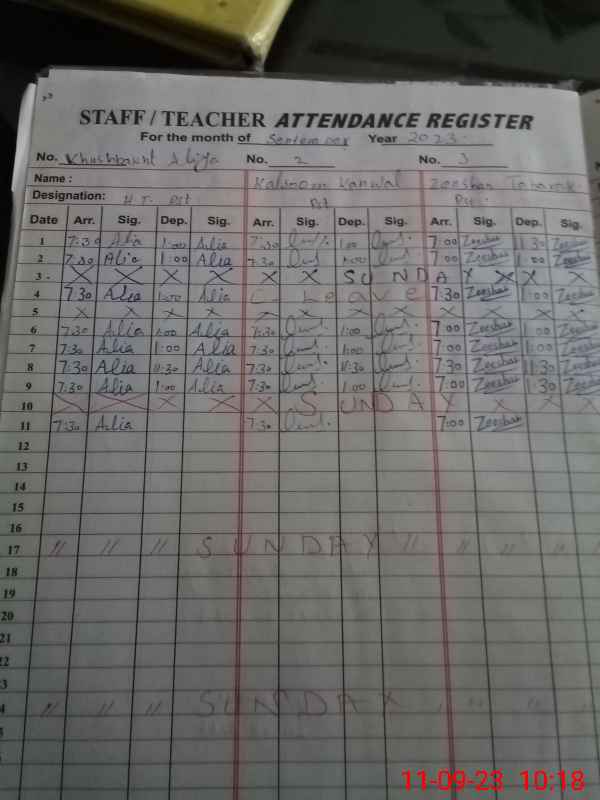 STAFF / TEACHER ATTENDANCE REGISTER
For the month of September Year 2023
No. Khushbakht Aliya No. 2 No. 3
Name : Kalsoom Kanwal Zeeshan Tabarak
Designation: H.T. Pst Pst Pst
Date Arr. Sig. Dep. Sig. Arr. Sig. Dep. Sig. Arr. Sig. Dep. Sig.
1 7:30 Alia 1:00 Alia 7:30 1:00 7:00 Zeeshan 11:30 Zeesh
2 7:30 Alia 1:00 Alia 7:30 1:00 7:00 Zeeshan 1:00 Zeesh
3 X X X X X X SUNDAY X X X
4 7:30 Alia 1:00 Alia C. Leave 7:30 Zeeshan 1:00 Zeesh
5 X X X X X X X X X X X X
6 7:30 Alia 1:00 Alia 7:30 1:00 7:00 Zeeshan 1:00 Zeesh
7 7:30 Alia 1:00 Alia 7:30 1:00 7:00 Zeeshan 1:00 Zeesh
8 7:30 Alia 11:30 Alia 7:30 11:30 7:30 Zeeshan 11:30 Zeesh
9 7:30 Alia 1:00 Alia 7:30 1:00 7:00 Zeeshan 1:30 Zeesh
10 X X X X X SUNDAY X X X
11 7:30 Alia 7:30 7:00 Zeeshan
12
13
14
15
16
17 " " " SUNDAY " " " "
18
19
20
21
22
23
24 " " " SUNDAY " " "
11-09-23 10:18